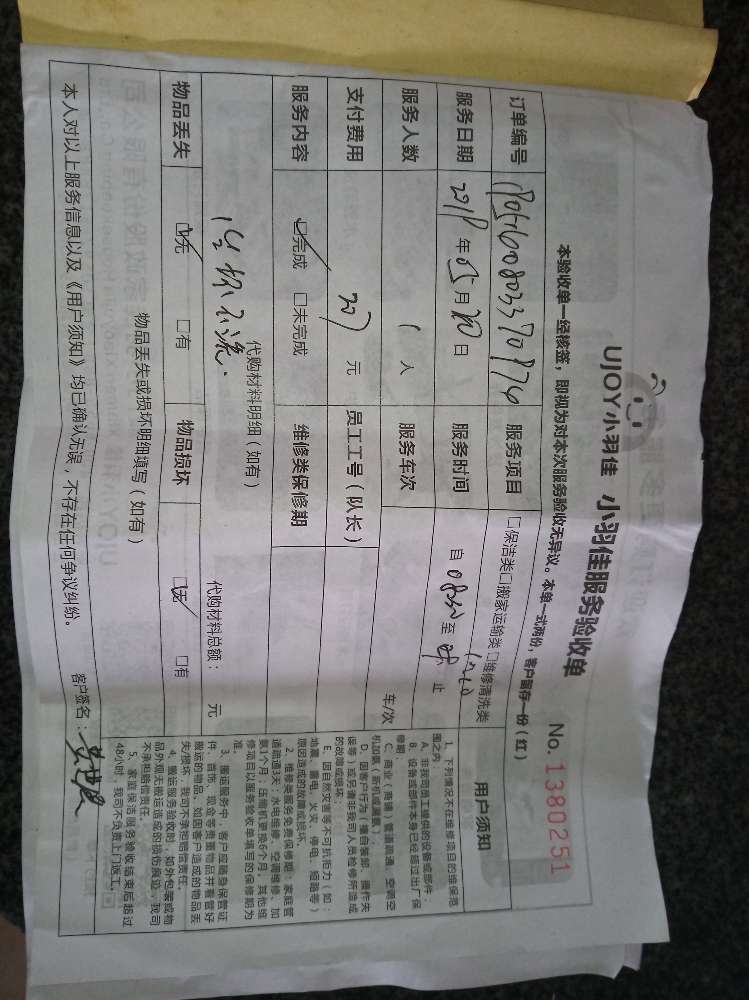 UJOY小羽佳 小羽佳服务验收单
No. 1380251
本验收单一经核签，即视为对本次服务验收无异议。本单一式两份，客户留存一份（红）
订单编号 服务项目 □保洁类□搬家运输类□维修清洗类
服务日期 2018年05月20日 服务时间 自0830至 止
服务人数 1人 服务车次 车/次
支付费用 元 员工工号（队长）
服务内容 ☑完成 □未完成 维修类保修期
代购材料明细（如有）
代购材料总额： 元
物品丢失 ☑无 □有 物品损坏 ☑无 □有
物品丢失或损坏明细填写（如有）
本人对以上服务信息以及《用户须知》均已确认无误，不存在任何争议纠纷。
客户签名：
用户须知
1、下列情况不在维修项目的维保范
围之内
A、非我司员工提供的设备或部件；
B、设备或部件本身已经超过出厂保
修期；
C、商业（商铺）管道疏通、空调空
机加氟、新机加氟；
D、因客户行为（擅自装卸、操作失
误等）或另请非我司人员检修所造成
的故障或损坏。
E、因自然灾害等不可抗拒力（如：
地震、雷电、火灾、停电、短路等）
原因造成的故障或损坏。
2、维修类服务免费保修期：家庭管
道疏通3天；水电维修、空调维修、加
氨1个月；压缩机更换6个月；其他维
修项目以服务验收单填写的保修期为
准。
3、搬运服务中，客户应随身保管证
件、首饰、现金等贵重物品并看管好
搬运的物品，如因客户造成的物品丢
失/损坏，我司不承担赔偿责任。
4、搬运服务验收时，如外包装或物
品外观无搬运造成的损伤痕迹，我司
不承担赔偿责任。
5、家庭保洁服务验收结束后超过
48小时，我司不负责上门返工。